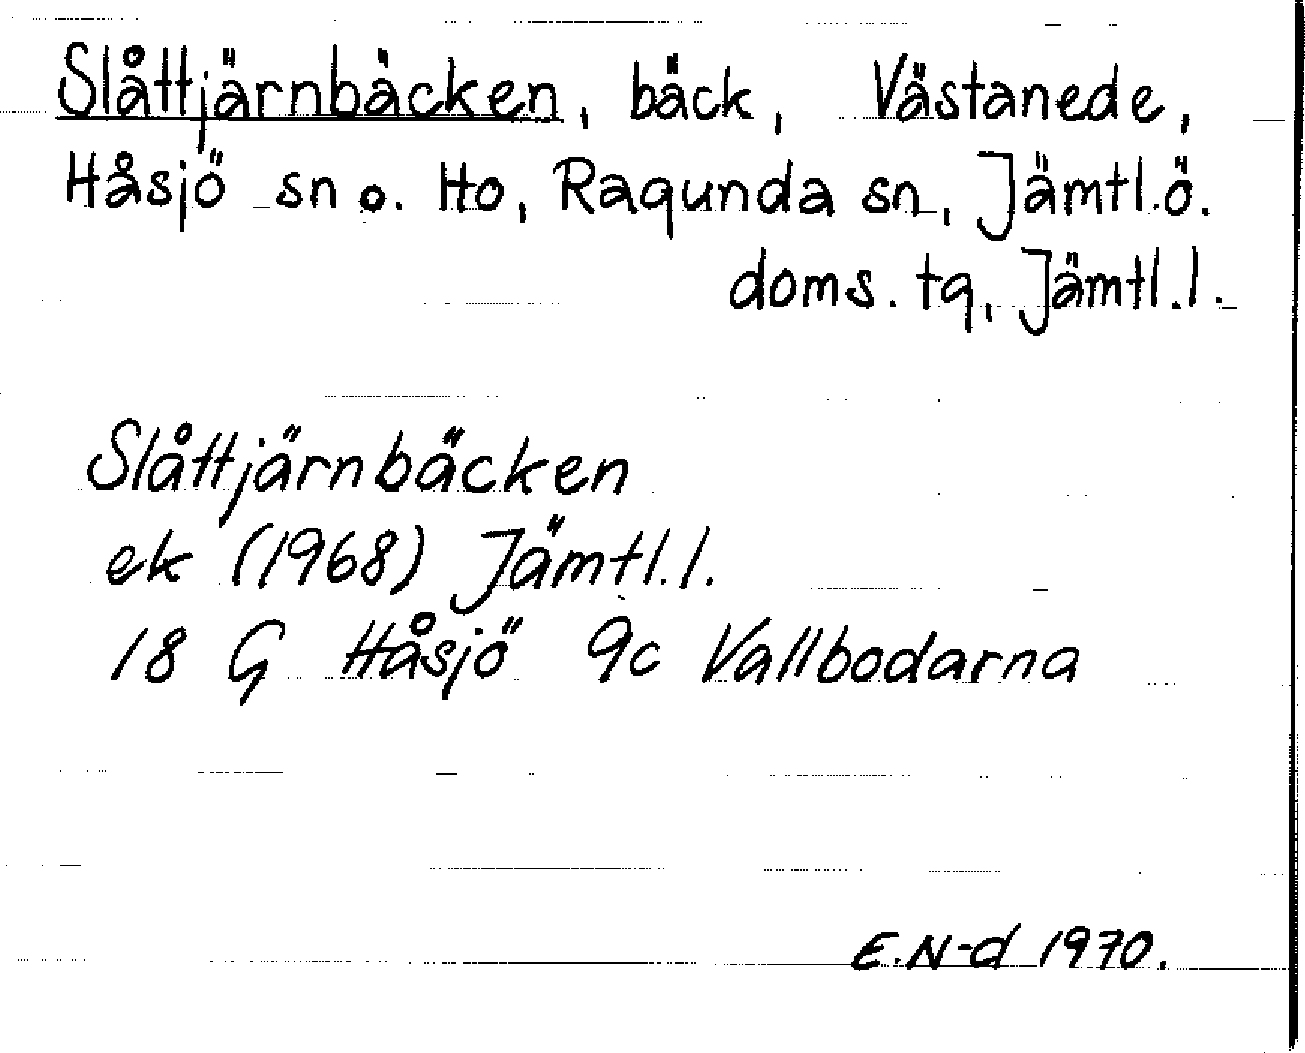 Slåttjärnbäcken, bäck, Västanede,
Håsjö sn o. Ho, Ragunda sn, Jämtl.ö.
doms. tg, Jämtl.l.
Slåttjärnbäcken
ek (1968) Jämtl.l.
18 G Håsjö 9c Vallbodarna
E.N-d 1970.